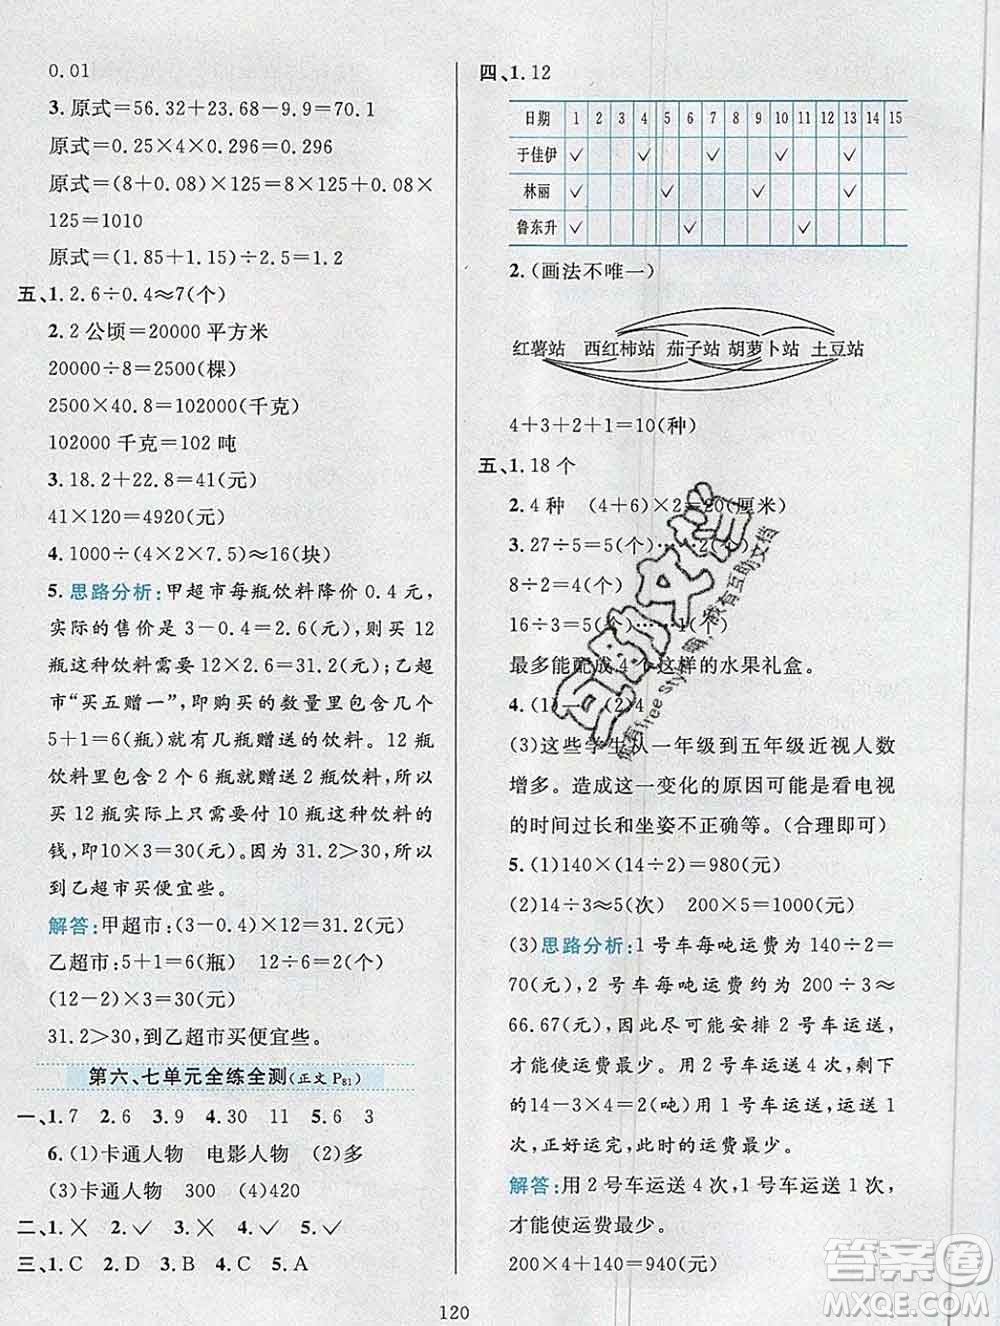 0.01
3.原式=56.32+23.68-9.9=70.1
原式=0.25×4×0.296=0.296
原式=(8+0.08)×125=8×125+0.08×
125=1010
原式=(1.85+1.15)÷2.5=1.2
五、1.2.6÷0.4≈7(个)
2.2公顷=20000平方米
20000÷8=2500(棵)
2500×40.8=102000(千克)
102000千克=102吨
3.18.2+22.8=41(元)
41×120=4920(元)
4.1000÷(4×2×7.5)≈16(块)
5.思路分析:甲超市每瓶饮料降价0.4元,
实际的售价是3-0.4=2.6(元),则买12
瓶这种饮料需要12×2.6=31.2(元);乙超
市“买五赠一”,即购买的数量里包含几个
5+1=6(瓶)就有几瓶赠送的饮料。12瓶
饮料里包含2个6瓶就赠送2瓶饮料,所以
买12瓶实际上只需要付10瓶这种饮料的
钱,即10×3=30(元)。因为31.2>30,所以
到乙超市买便宜些。
解答:甲超市:(3-0.4)×12=31.2(元)
乙超市:5+1=6(瓶) 12÷6=2(个)
(12-2)×3=30(元)
31.2>30,到乙超市买便宜些。
第六、七单元全练全测(正文P81)
一、1.7 2.6 3.9 4.30 11 5.6 3
6.(1)卡通人物 电影人物 (2)多
(3)卡通人物 300 (4)420
二、1.× 2.✓ 3.× 4.✓ 5.✓
三、1.C 2.D 3.B 4.C 5.A
四、1.12
日期 1 2 3 4 5 6 7 8 9 10 11 12 13 14 15
于佳伊 ✓ ✓ ✓ ✓ ✓
林丽 ✓ ✓ ✓ ✓
鲁东升 ✓ ✓ ✓
2.(画法不唯一)
红薯站 西红柿站 茄子站 胡萝卜站 土豆站
4+3+2+1=10(种)
五、1.18个
2.4种 (4+6)×2=20(厘米)
3.27÷5=5(个)……2(个)
8÷2=4(个)
16÷3=5(个)……1(个)
最多能配成4个这样的水果礼盒。
4.(1)一 (2)4
(3)这些学生从一年级到五年级近视人数
增多。造成这一变化的原因可能是看电视
的时间过长和坐姿不正确等。(合理即可)
5.(1)140×(14÷2)=980(元)
(2)14÷3≈5(次) 200×5=1000(元)
(3)思路分析:1号车每吨运费为140÷2=
70(元),2号车每吨运费为200÷3≈
66.67(元)。尽可能安排2号车运送,
才能使运费最少。用2号车运送4次,
剩14-3×4=2(吨)用1号车运送1
次,正好运完,此时的运费最少。
解答:用2号车运送4次,1号车运送1次
才能使运费最少。
200×4+140=940(元)
120
答案圈
MXQE.COM